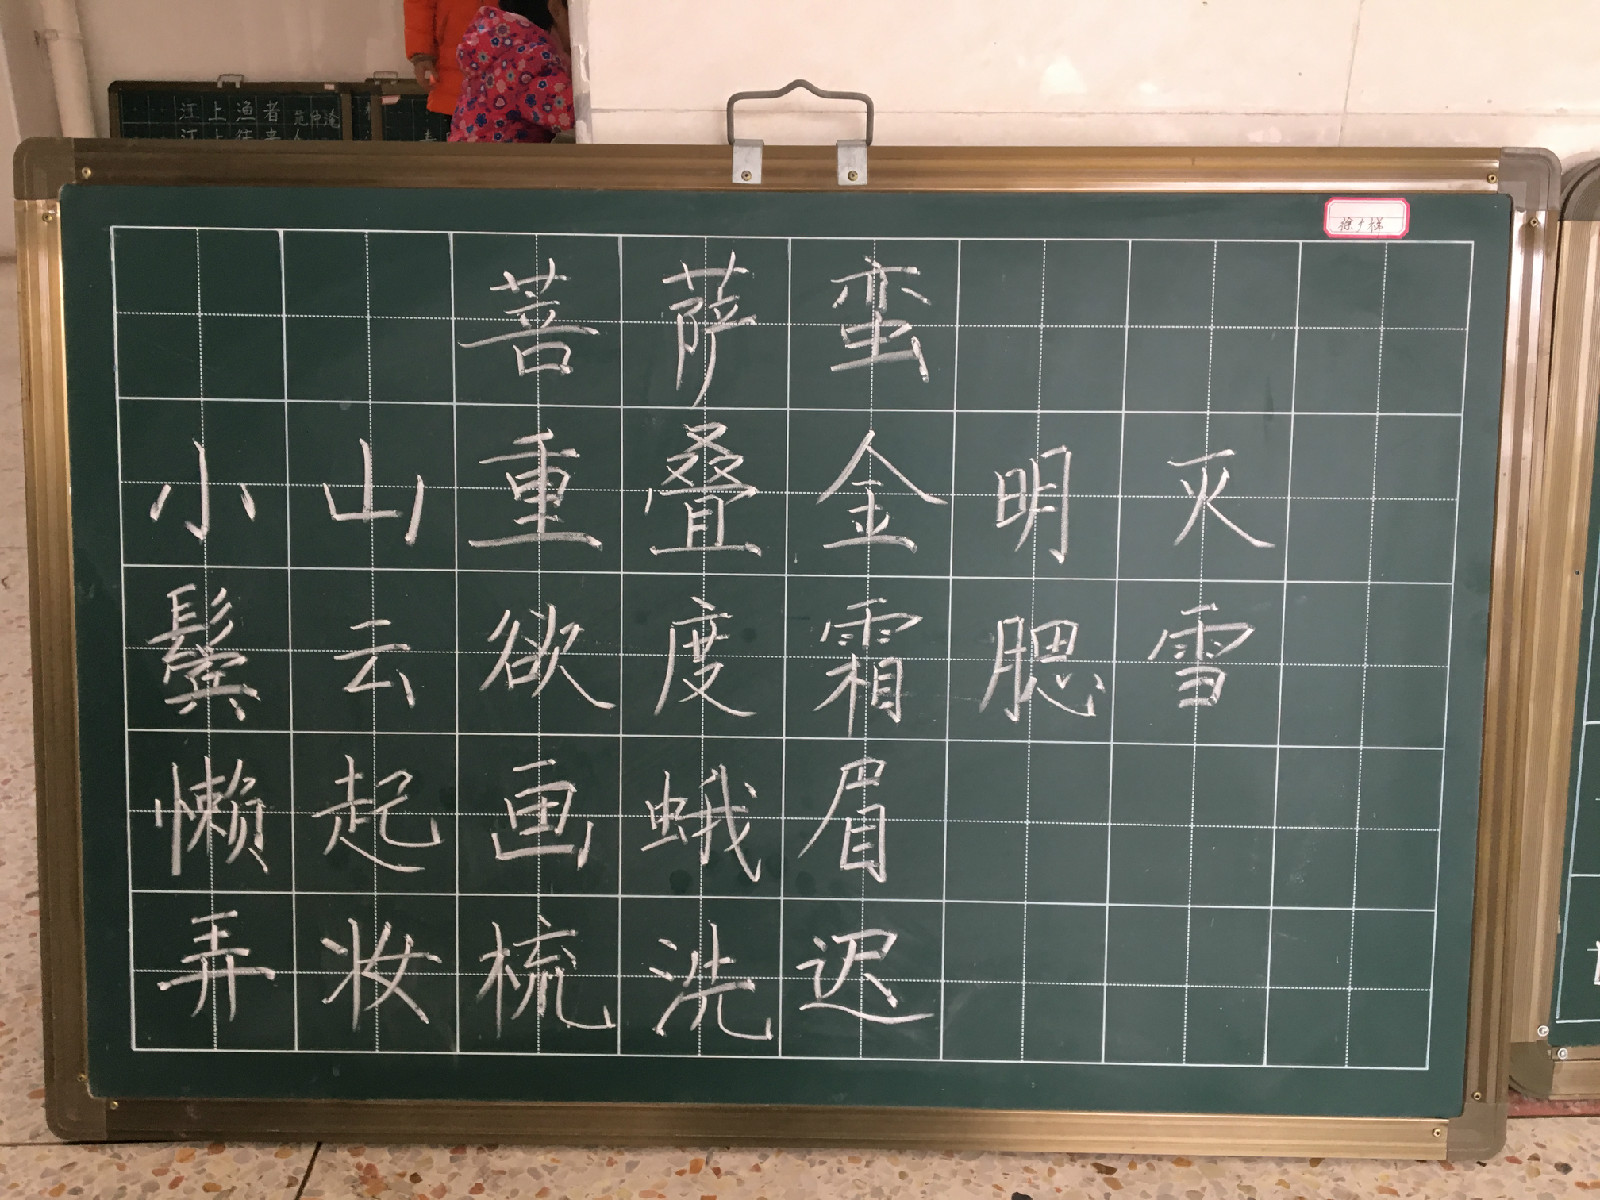 江上渔者 范仲淹
菩萨蛮
小山重叠金明灭
鬓云欲度霜腮雪
懒起画蛾眉
弄妆梳洗迟